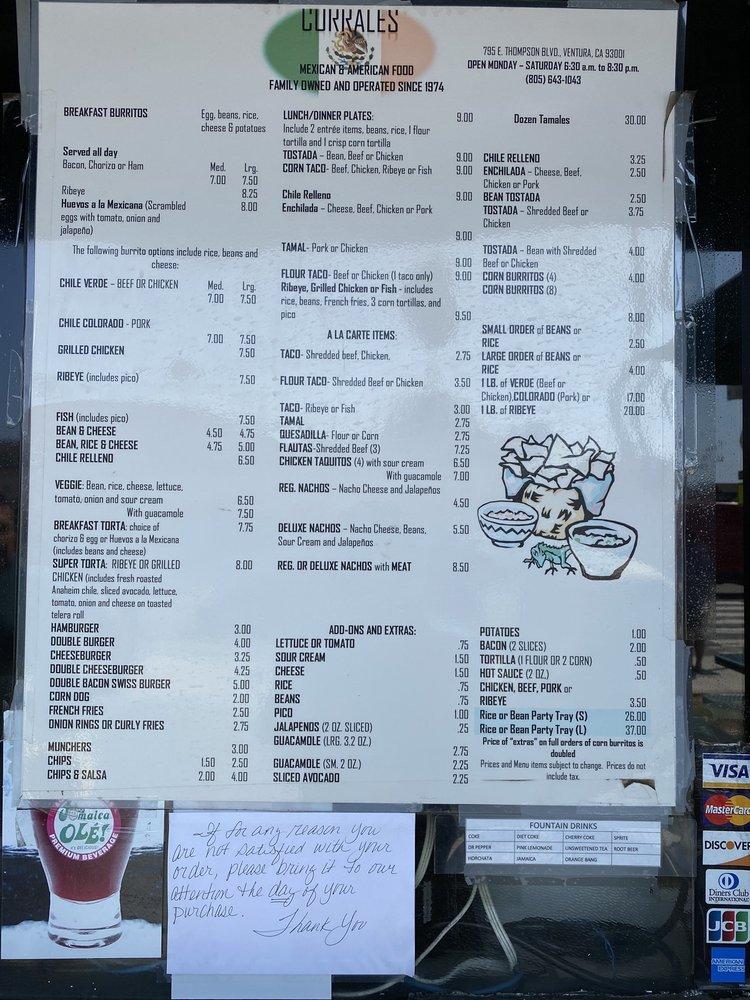 CORRALES
MEXICAN & AMERICAN FOOD
FAMILY OWNED AND OPERATED SINCE 1974
795 E. THOMPSON BLVD., VENTURA, CA 93001
OPEN MONDAY – SATURDAY 6:30 a.m. to 8:30 p.m.
(805) 643-1043
BREAKFAST BURRITOS Egg, beans, rice,
cheese & potatoes
Served all day
Bacon, Chorizo or Ham Med. Lrg.
7.00 7.50
Ribeye 8.25
Huevos a la Mexicana (Scrambled 8.00
eggs with tomato, onion and
jalapeño)
The following burrito options include rice, beans and
cheese:
CHILE VERDE – BEEF OR CHICKEN Med. Lrg.
7.00 7.50
CHILE COLORADO - PORK
7.00 7.50
GRILLED CHICKEN 7.50
RIBEYE (includes pico) 7.50
FISH (includes pico) 7.50
BEAN & CHEESE 4.50 4.75
BEAN, RICE & CHEESE 4.75 5.00
CHILE RELLENO 6.50
VEGGIE: Bean, rice, cheese, lettuce,
tomato, onion and sour cream 6.50
With guacamole 7.50
BREAKFAST TORTA: choice of 7.75
chorizo & egg or Huevos a la Mexicana
(includes beans and cheese)
SUPER TORTA: RIBEYE OR GRILLED 8.00
CHICKEN (includes fresh roasted
Anaheim chile, sliced avocado, lettuce,
tomato, onion and cheese on toasted
telera roll
HAMBURGER 3.00
DOUBLE BURGER 4.00
CHEESEBURGER 3.25
DOUBLE CHEESEBURGER 4.25
DOUBLE BACON SWISS BURGER 5.00
CORN DOG 2.00
FRENCH FRIES 2.50
ONION RINGS OR CURLY FRIES 2.75
MUNCHERS 3.00
CHIPS 1.50 2.50
CHIPS & SALSA 2.00 4.00
LUNCH/DINNER PLATES: 9.00
Include 2 entrée items, beans, rice, 1 flour
tortilla and 1 crisp corn tortilla
TOSTADA – Bean, Beef or Chicken 9.00
CORN TACO- Beef, Chicken, Ribeye or Fish 9.00
Chile Relleno 9.00
Enchilada – Cheese, Beef, Chicken or Pork
9.00
TAMAL- Pork or Chicken
9.00
FLOUR TACO- Beef or Chicken (1 taco only) 9.00
Ribeye, Grilled Chicken or Fish - includes
rice, beans, French fries, 3 corn tortillas, and
pico 9.50
A LA CARTE ITEMS:
TACO- Shredded beef, Chicken, 2.75
FLOUR TACO- Shredded Beef or Chicken 3.50
TACO- Ribeye or Fish 3.00
TAMAL 2.75
QUESADILLA- Flour or Corn 2.75
FLAUTAS-Shredded Beef (3) 7.25
CHICKEN TAQUITOS (4) with sour cream 6.50
With guacamole 7.00
REG. NACHOS – Nacho Cheese and Jalapeños
4.50
DELUXE NACHOS – Nacho Cheese, Beans, 5.50
Sour Cream and Jalapeños
REG. OR DELUXE NACHOS with MEAT 8.50
ADD-ONS AND EXTRAS:
LETTUCE OR TOMATO .75
SOUR CREAM 1.50
CHEESE 1.50
RICE .75
BEANS .75
PICO 1.00
JALAPENOS (2 OZ. SLICED) .25
GUACAMOLE (LRG. 3.2 OZ.)
2.75
GUACAMOLE (SM. 2 OZ.) 2.25
SLICED AVOCADO 2.25
Dozen Tamales 30.00
CHILE RELLENO 3.25
ENCHILADA – Cheese, Beef, 2.50
Chicken or Pork
BEAN TOSTADA 2.50
TOSTADA – Shredded Beef or 3.75
Chicken
TOSTADA – Bean with Shredded 4.00
Beef or Chicken
CORN BURRITOS (4) 4.00
CORN BURRITOS (8)
8.00
SMALL ORDER of BEANS or
RICE 2.50
LARGE ORDER of BEANS or
RICE 4.00
1 LB. of VERDE (Beef or
Chicken),COLORADO (Pork) or 17.00
1 LB. of RIBEYE 20.00
POTATOES 1.00
BACON (2 SLICES) 2.00
TORTILLA (1 FLOUR OR 2 CORN) .50
HOT SAUCE (2 OZ.) .50
CHICKEN, BEEF, PORK or
RIBEYE 3.50
Rice or Bean Party Tray (S) 26.00
Rice or Bean Party Tray (L) 37.00
Price of "extras" on full orders of corn burritos is
doubled
Prices and Menu items subject to change. Prices do not
include tax.
Jamaica
OLÉ!
PREMIUM BEVERAGE
If for any reason you
are not satisfied with your
order, please bring it to our
attention the day of your
purchase.
Thank You
FOUNTAIN DRINKS
COKE DIET COKE CHERRY COKE SPRITE
DR PEPPER PINK LEMONADE UNSWEETENED TEA ROOT BEER
HORCHATA JAMAICA ORANGE BANG
VISA
MasterCard
DISCOVER
Diners Club
INTERNATIONAL
JCB
AMERICAN
EXPRESS